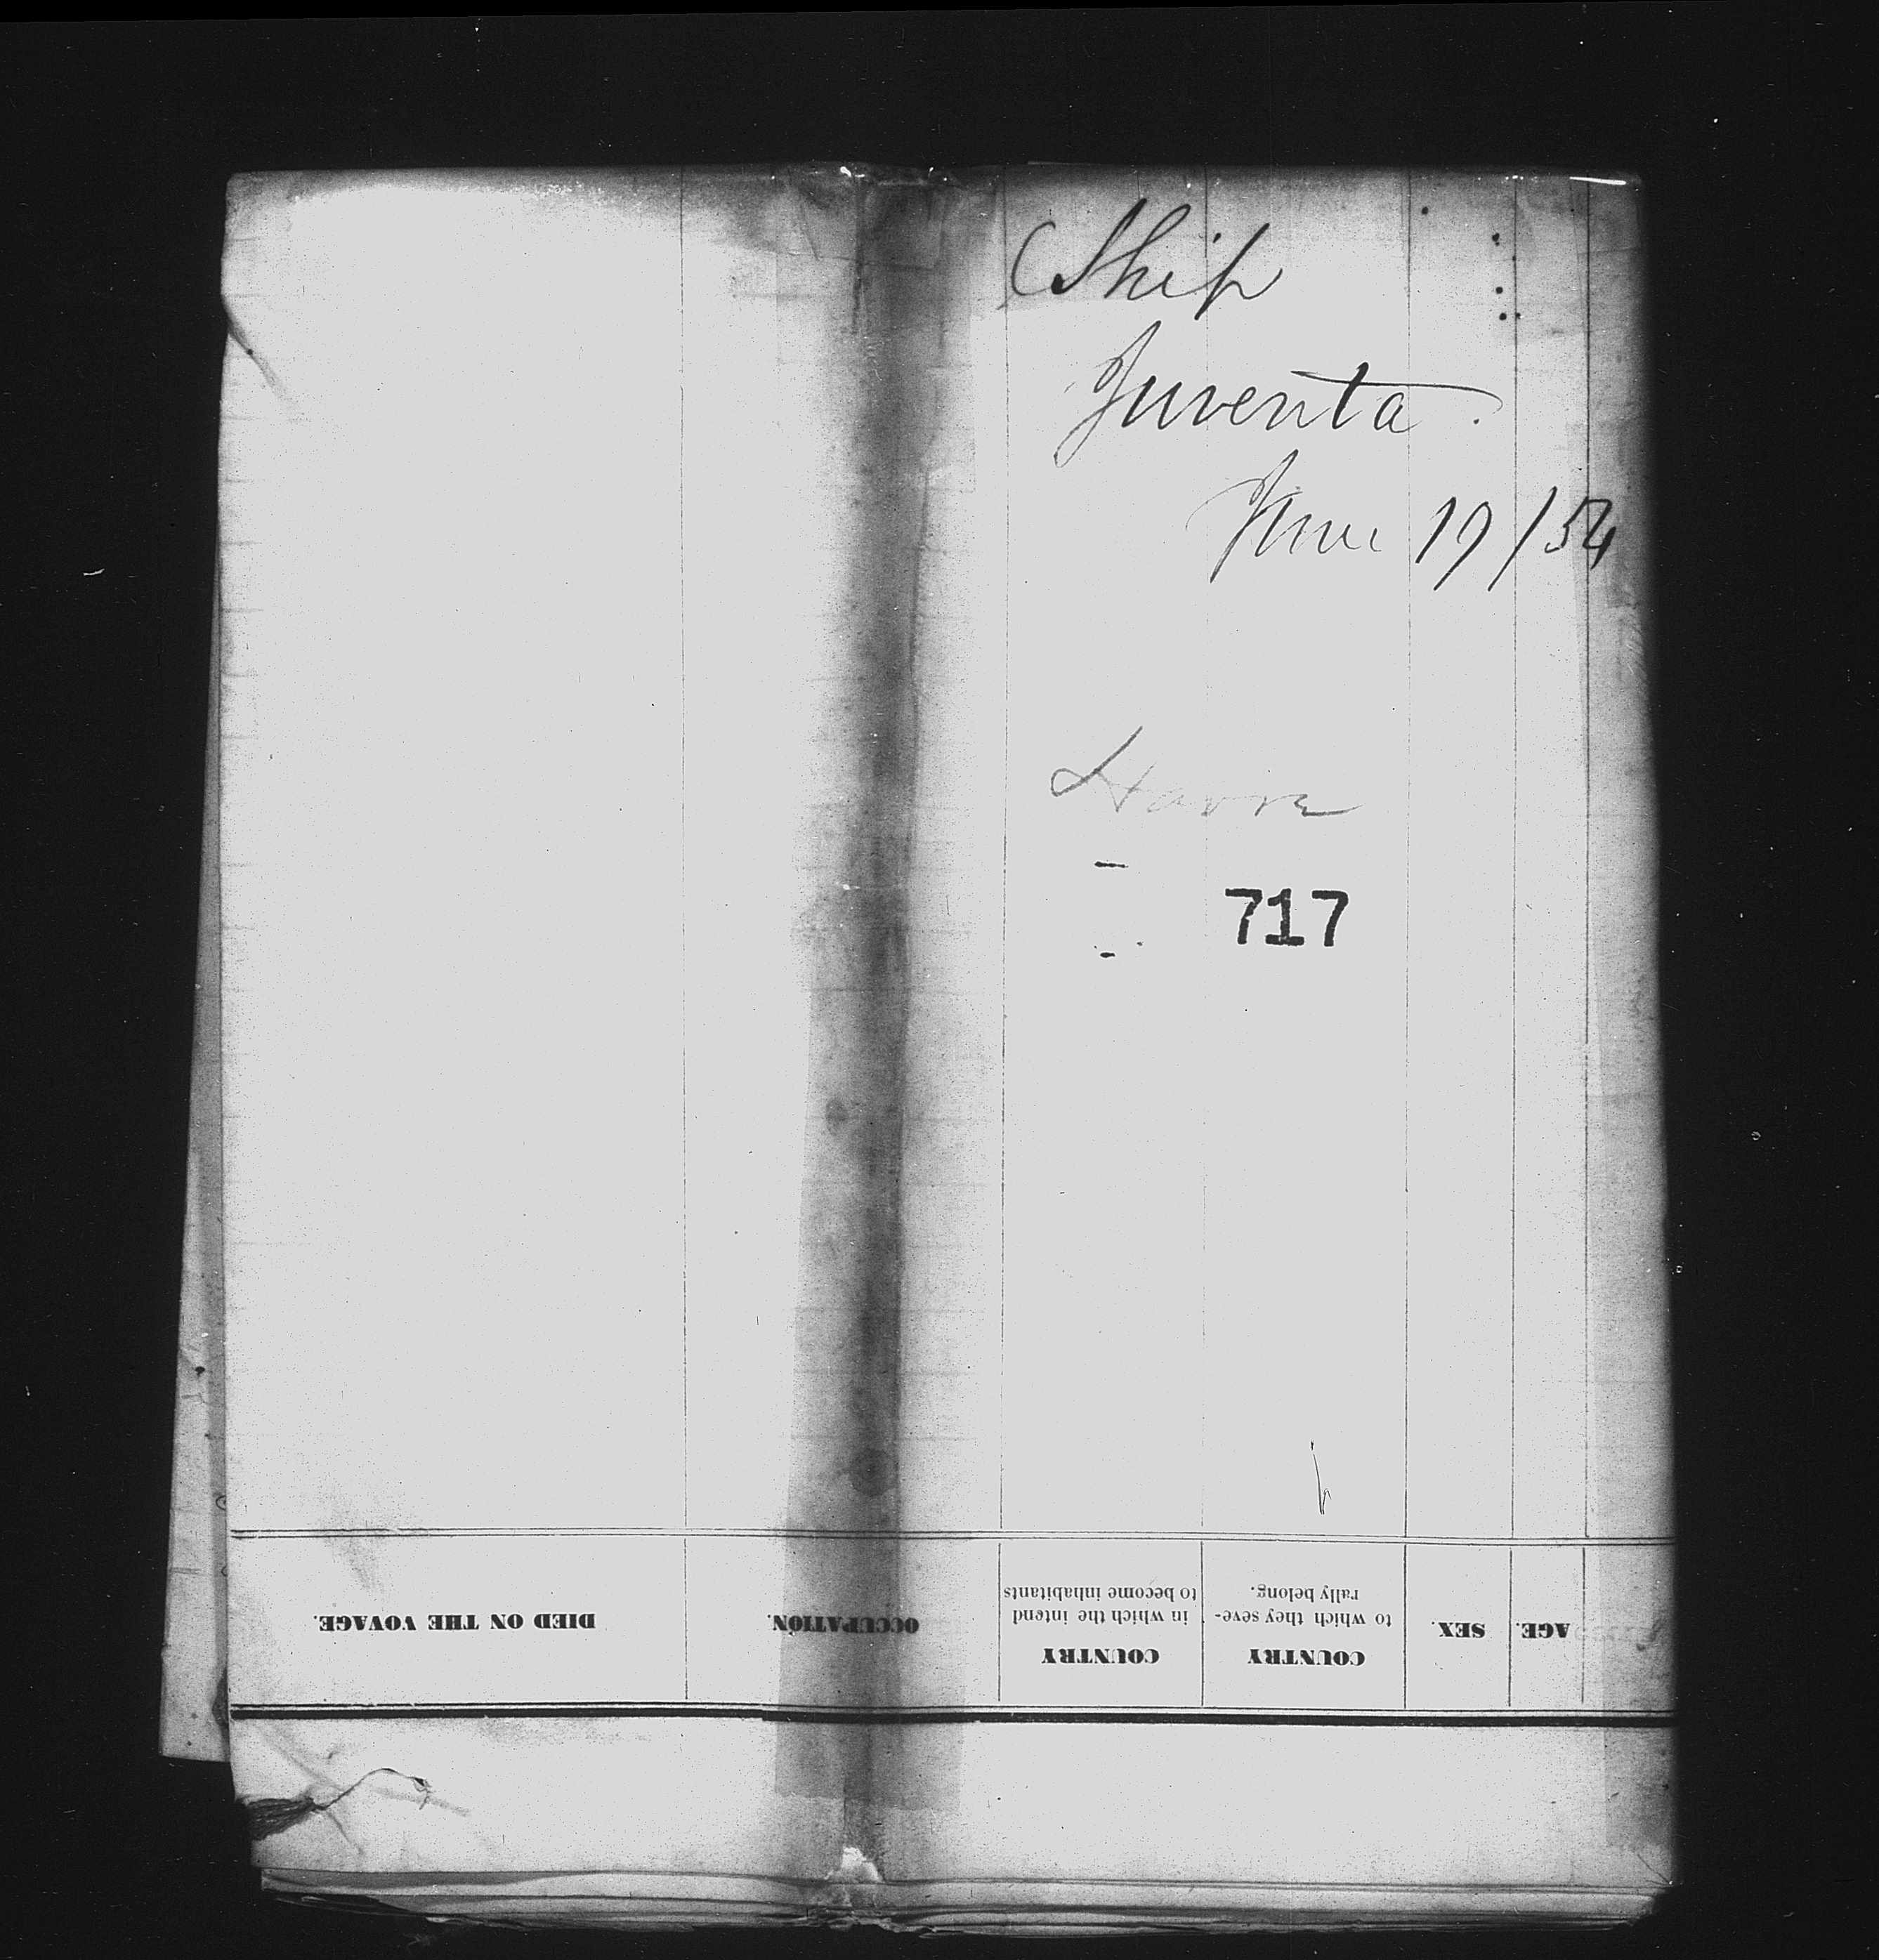 Ship
Juventa.
June 19/54
Havre
717
AGE.
SEX.
COUNTRY
to which they seve-
rally belong.
COUNTRY
in which the intend
to become inhabitants
OCCUPATION.
DIED ON THE VOYAGE.